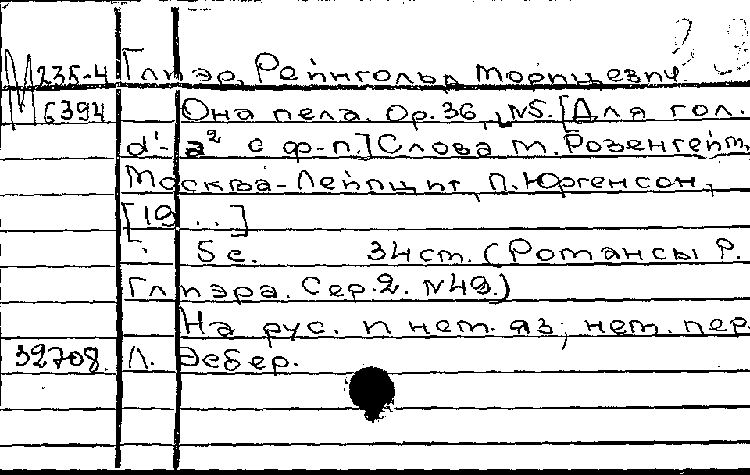 М 235-4 Глиэр, Рейнгольд Морицевич
6394 Она пела. Ор.36, №5. [Для гол.
d¹-a² с ф-п.] Слова М. Розенгейм,
Москва-Лейпциг, П. Юргенсон,
[19...]
5 с. 34 см. (Романсы Р.
Глиэра. Сер.2. №49.)
На рус. и нем. яз; нем. пер
32708 Л. Эсбер.